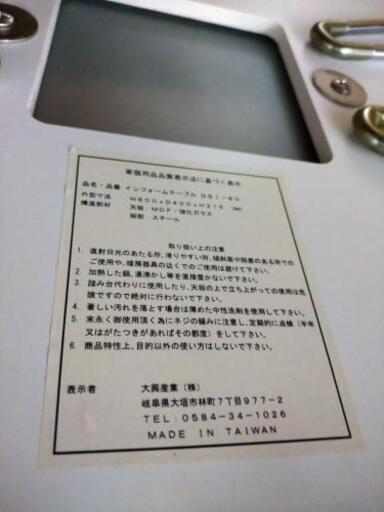 家庭用品品質表示法に基づく表示
品名・品番 インフォームテーブル DS1-60
外型寸法 W600×D400×H315 (㎜)
構造部材 天板 MDF・強化ガラス
脚部 スチール
取り扱い上の注意
1. 直射日光のあたる所、滑りやすい所、傾斜面や段差のある所での
ご使用や、暖房器具の近くでのご使用は避けて下さい。
2. 加熱した鍋、湯沸かし等を直接置かないで下さい。
3. 踏み台代わりに使用したり、天板の上で立ち上がっての使用は危
険ですので絶対に行わないで下さい。
4. 著しい汚れを落とす場合は薄めた中性洗剤を使用して下さい。
5. 末永く御使用頂く為にネジの緩みに注意し、定期的に点検(半年
又はがたつきがあればその都度)をして下さい。
6. 商品特性上、目的以外の使い方はしないで下さい。
表示者 大興産業(株)
岐阜県大垣市林町7丁目977-2
TEL:0584-34-1026
MADE IN TAIWAN